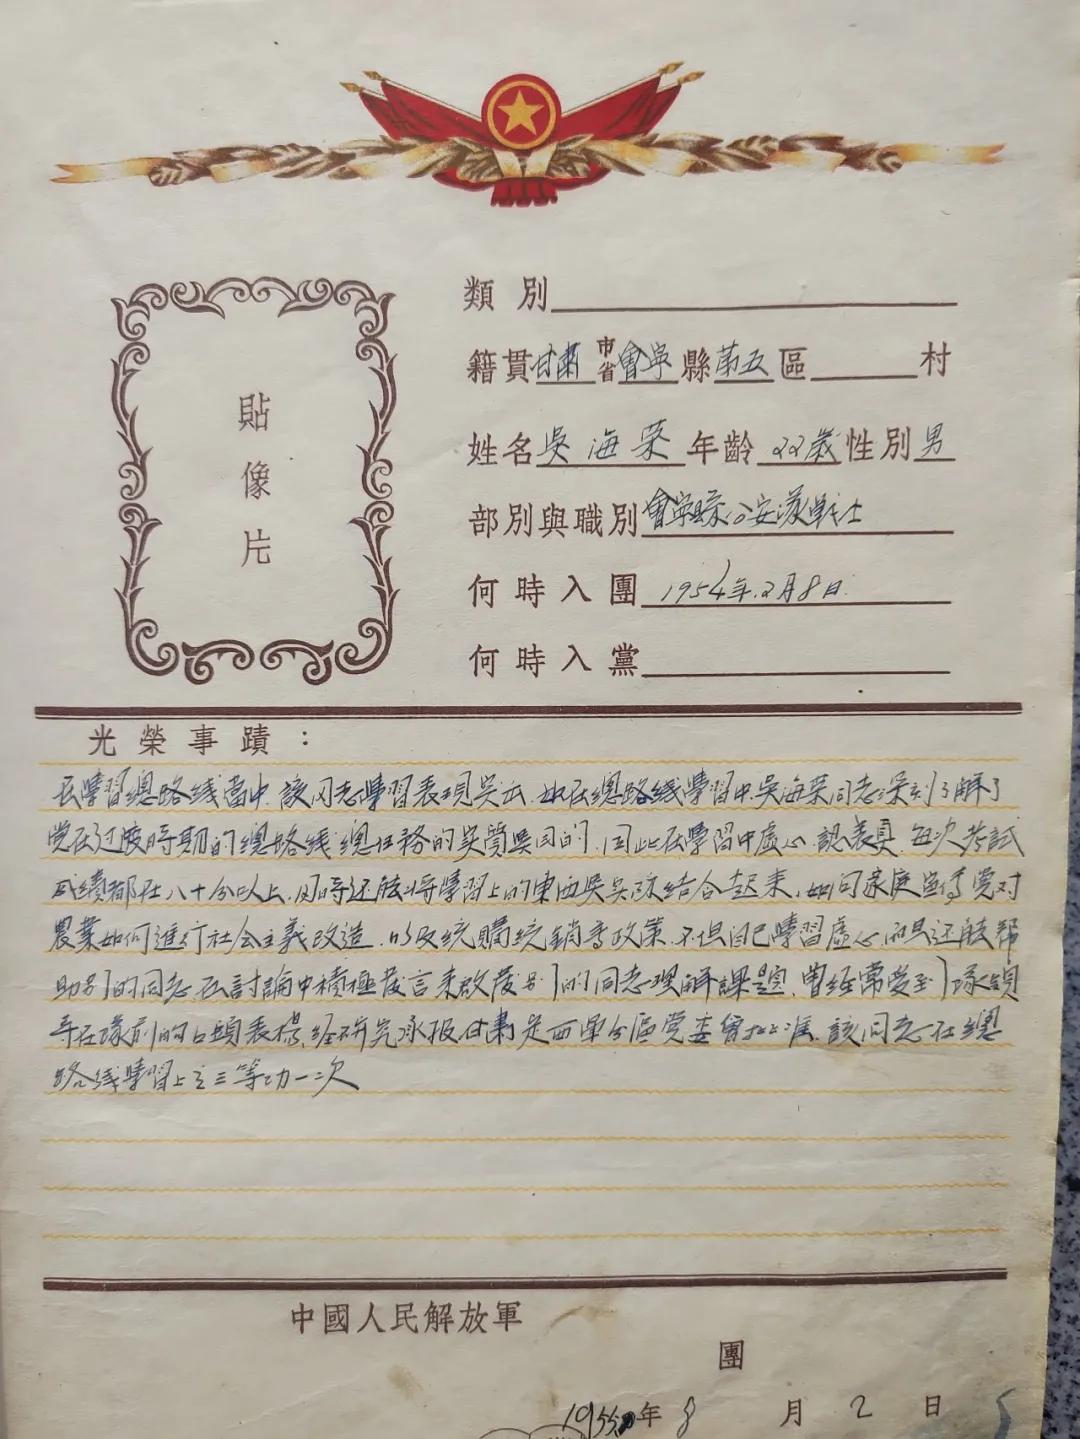 貼像片
類別
籍貫甘肅市省會寧縣第五區 村
姓名吳海荣年齡22歲性別男
部別與職別會寧縣公安隊戰士
何時入團1954年2月8日
何時入黨
光榮事蹟：
在學習總路线當中,該同志學習表現 如在總路线學習中吳海荣同志深刻了解了
党在过渡時期的總路线總任務的实質 目的,因此在學習中虛心,認真,每次考試
成績都在八十分以上,同時还能将學習上的東西 实际结合起来,如向家庭宣傳党对
農業如何進行社会主義改造,以及統購統銷 政策,不但自己學習虛心,而且还能帮
助别的同志,在討論中積極发言来啟发别的同志理解課題,曾经常受到隊領
导在隊前的口頭表揚,经研究 报甘肅 軍分區党委會批准,該同志在總
路线學習上立三等功一次
中國人民解放軍
團
1955年8月2日